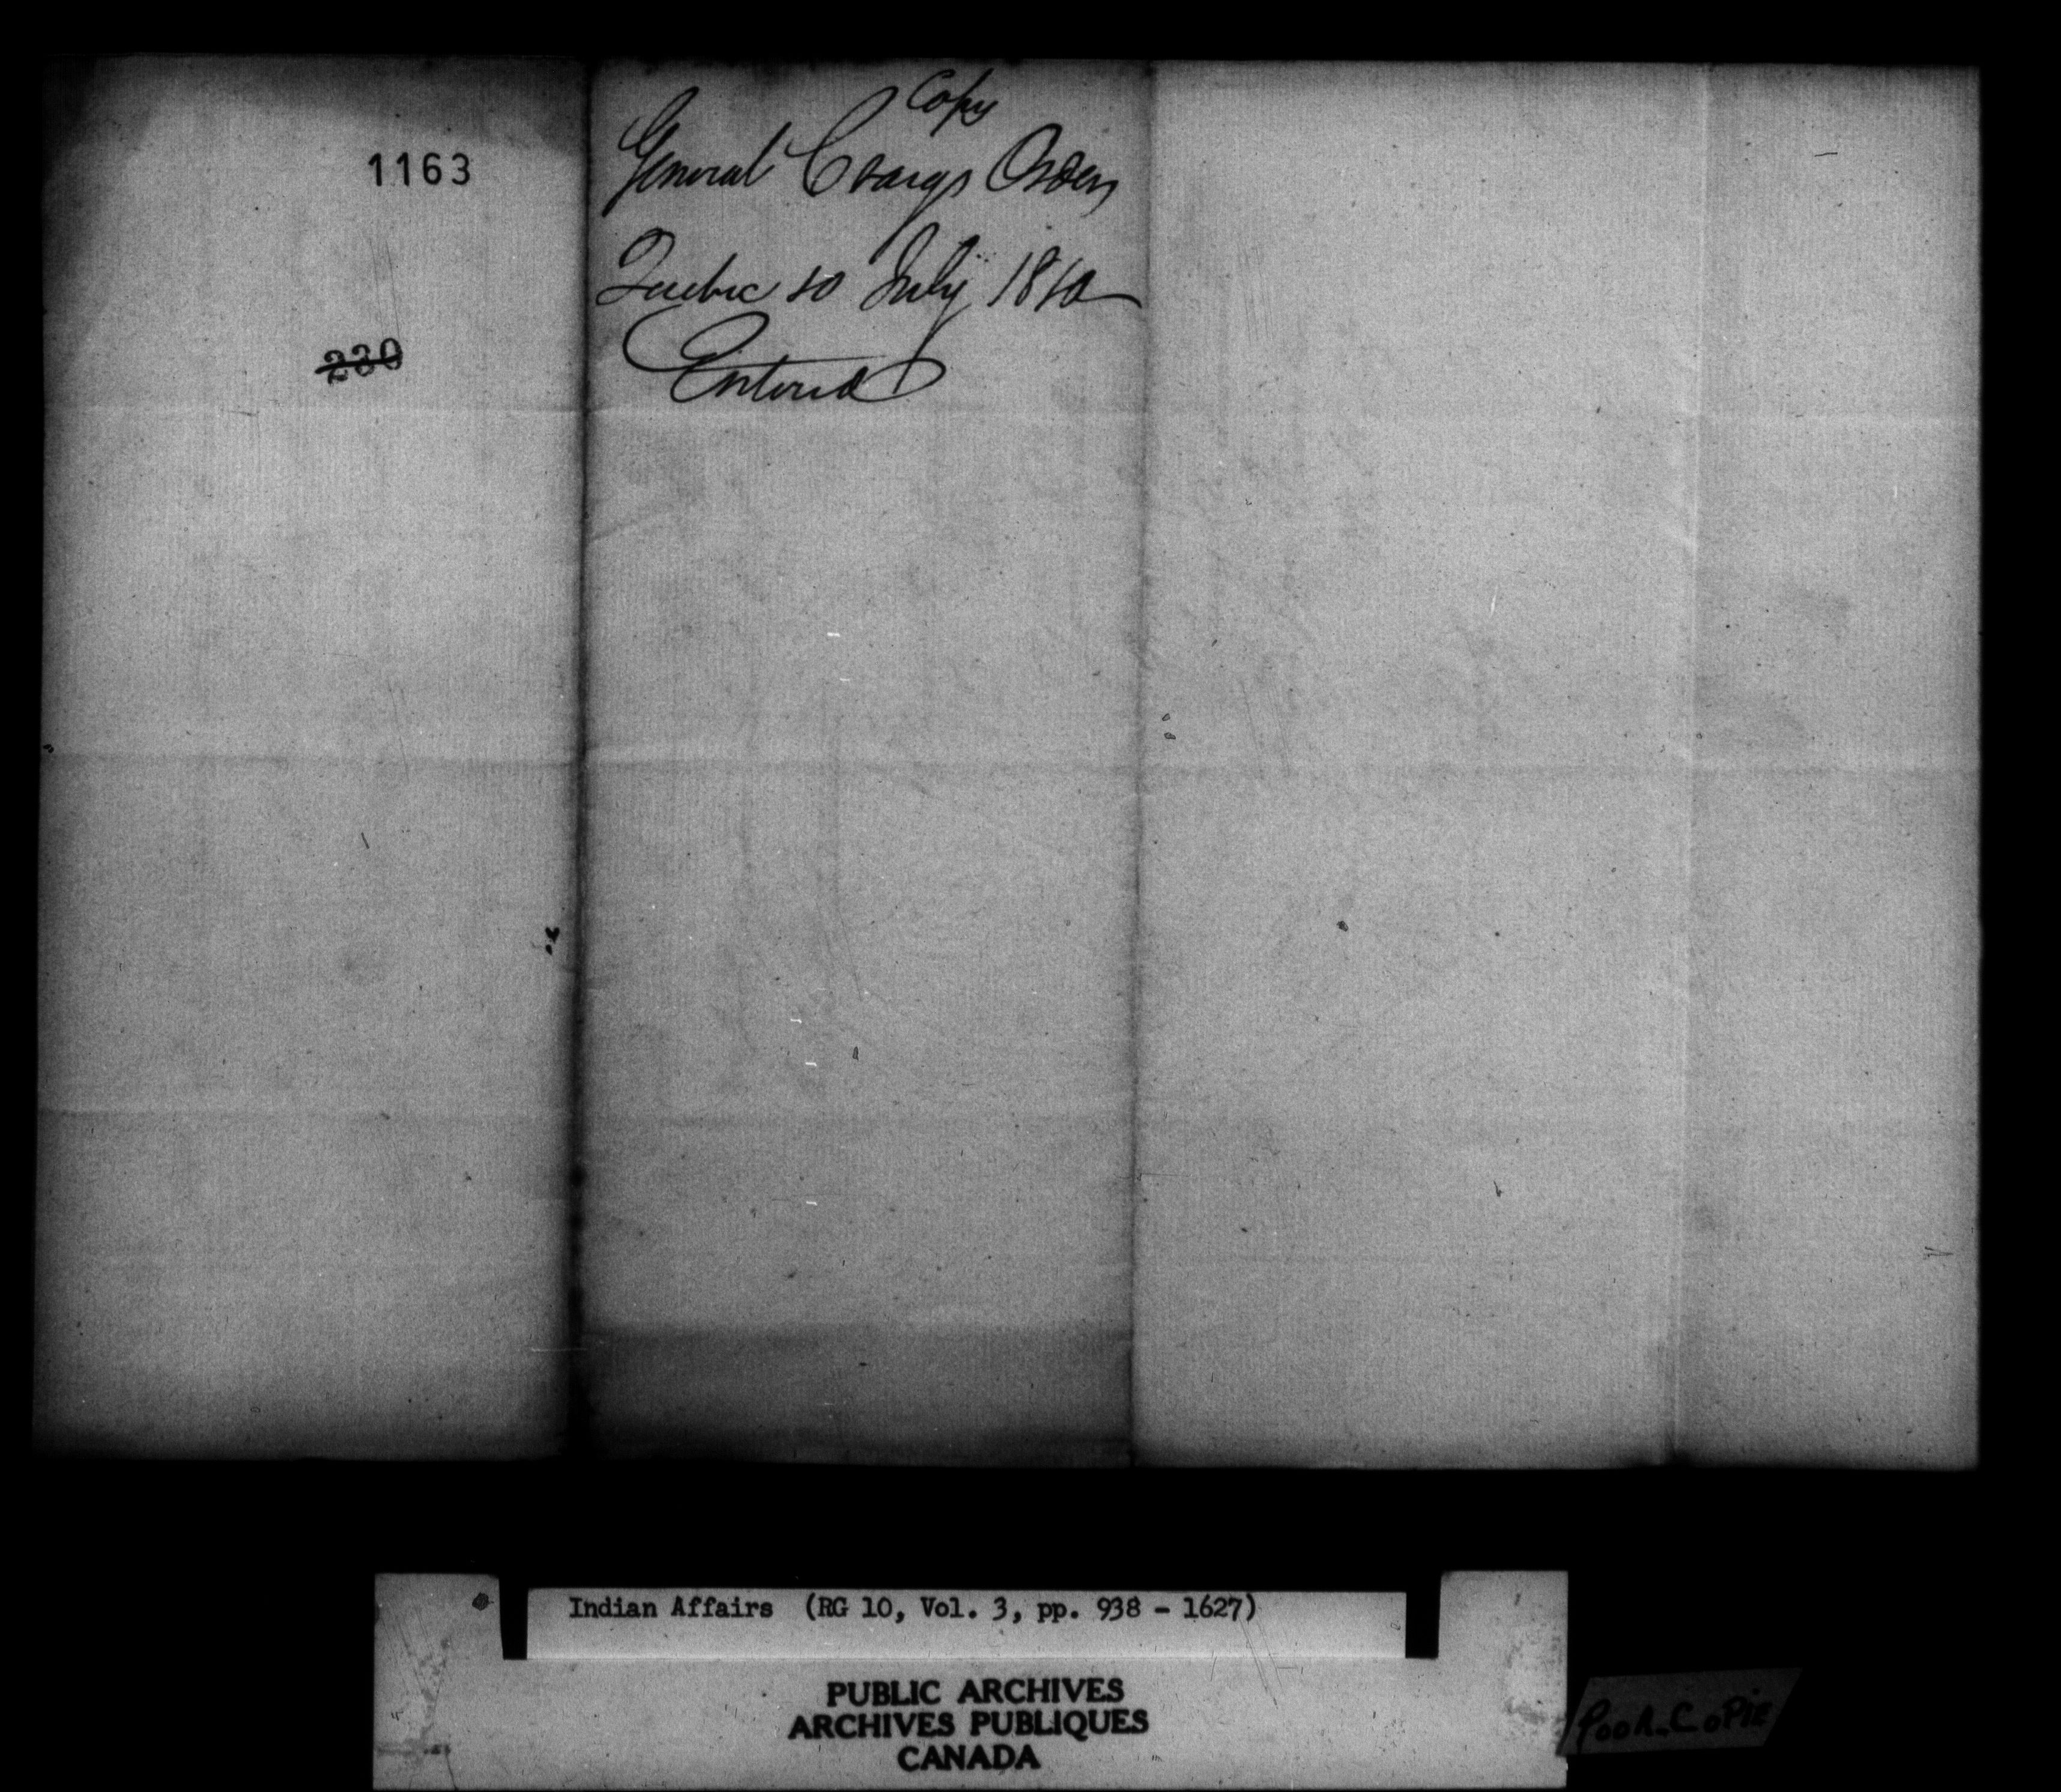 1163
230
Copy
General Craigs Orders
Quebec 10 July 1810
Entered
Indian Affairs (RG 10, Vol. 3, pp. 938 - 1627)
PUBLIC ARCHIVES
ARCHIVES PUBLIQUES
CANADA
POOR COPIE